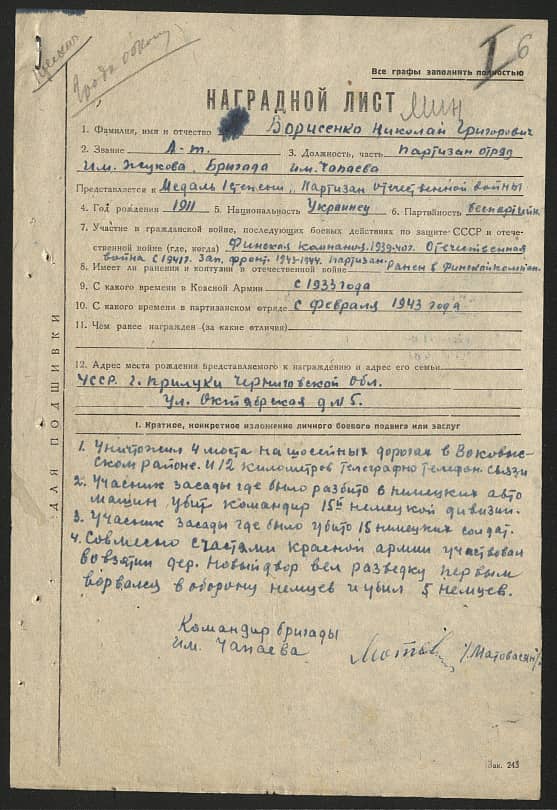 I 6
Все графы заполнять полностью
НАГРАДНОЙ ЛИСТ
1. Фамилия, имя и отчество Борисенко Николай Григорович
2. Звание Л-т. 3. Должность, часть партизан отряд
им. Жукова, Бригада им. Чапаева
Представляется к Медаль I степени, Партизан отечественной войны
4. Год рождения 1911 5. Национальность Украинец 6. Партийность беспартийн
7. Участие в гражданской войне, последующих боевых действиях по защите СССР и отече-
ственной войне (где, когда) Финская компания. 1939-40г. Отечественная
война с 1941г. Зап. фронт. 1943-1944. Партизан.
8. Имеет ли ранения и контузии в отечественной войне Ранен в Финской компан.
9. С какого времени в Красной Армии с 1933 года
10. С какого времени в партизанском отряде с февраля 1943 года
11. Чем ранее награжден (за какие отличия)
12. Адрес места рождения представляемого к награждению и адрес его семьи
УССР. г. Прилуки Черниговской Обл.
Ул. Октябрская д №5.
I. Краткое, конкретное изложение личного боевого подвига или заслуг
1. Уничтожил 4 моста на шосейных дорогах в Воковыс-
ском районе. И 12 километров телеграфно телефон. связи
2. Учасник засады где было разбито 2 немецких авто
машин убит командир 15й немецкой дивизии.
3. Учасник засады где было убито 15 немецких солдат.
4. Совмесно с частями Красной армии участвовал
во взятии дер. Новый двор вел разведку первым
ворвался в оборону немцев и убил 5 немцев.
Командир бригады
им. Чапаева
ДЛЯ ПОДШИВКИ
Зак. 243